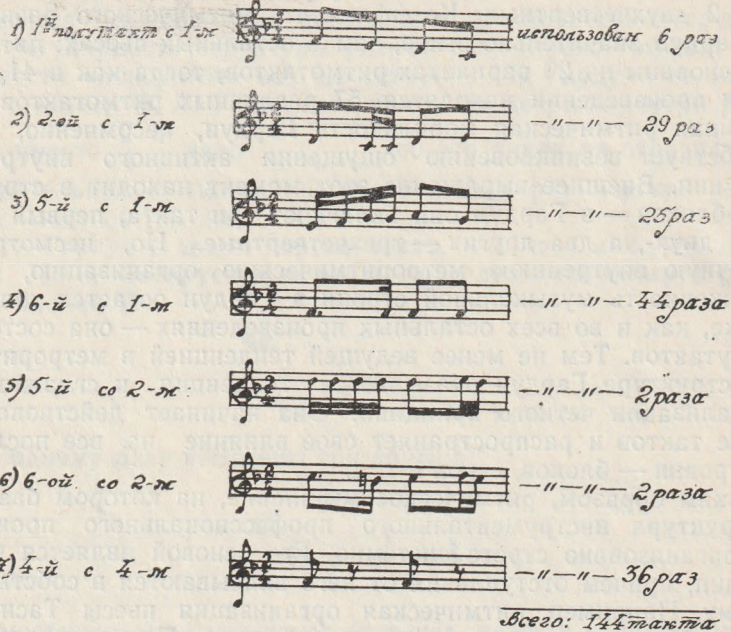 1) 1й полутакт с 1-м использован 6 раз
2) 2-ой с 1-м —"— —"— 29 раз
3) 5-й с 1-м —"— —"— 25 раз
4) 6-й с 1-м —"— —"— 44 раза
5) 5-й со 2-м —"— —"— 2 раза
6) 6-ой со 2-м —"— —"— 2 раза
7) 4-й с 4-м —"— —"— 36 раз
Всего: 144 такта